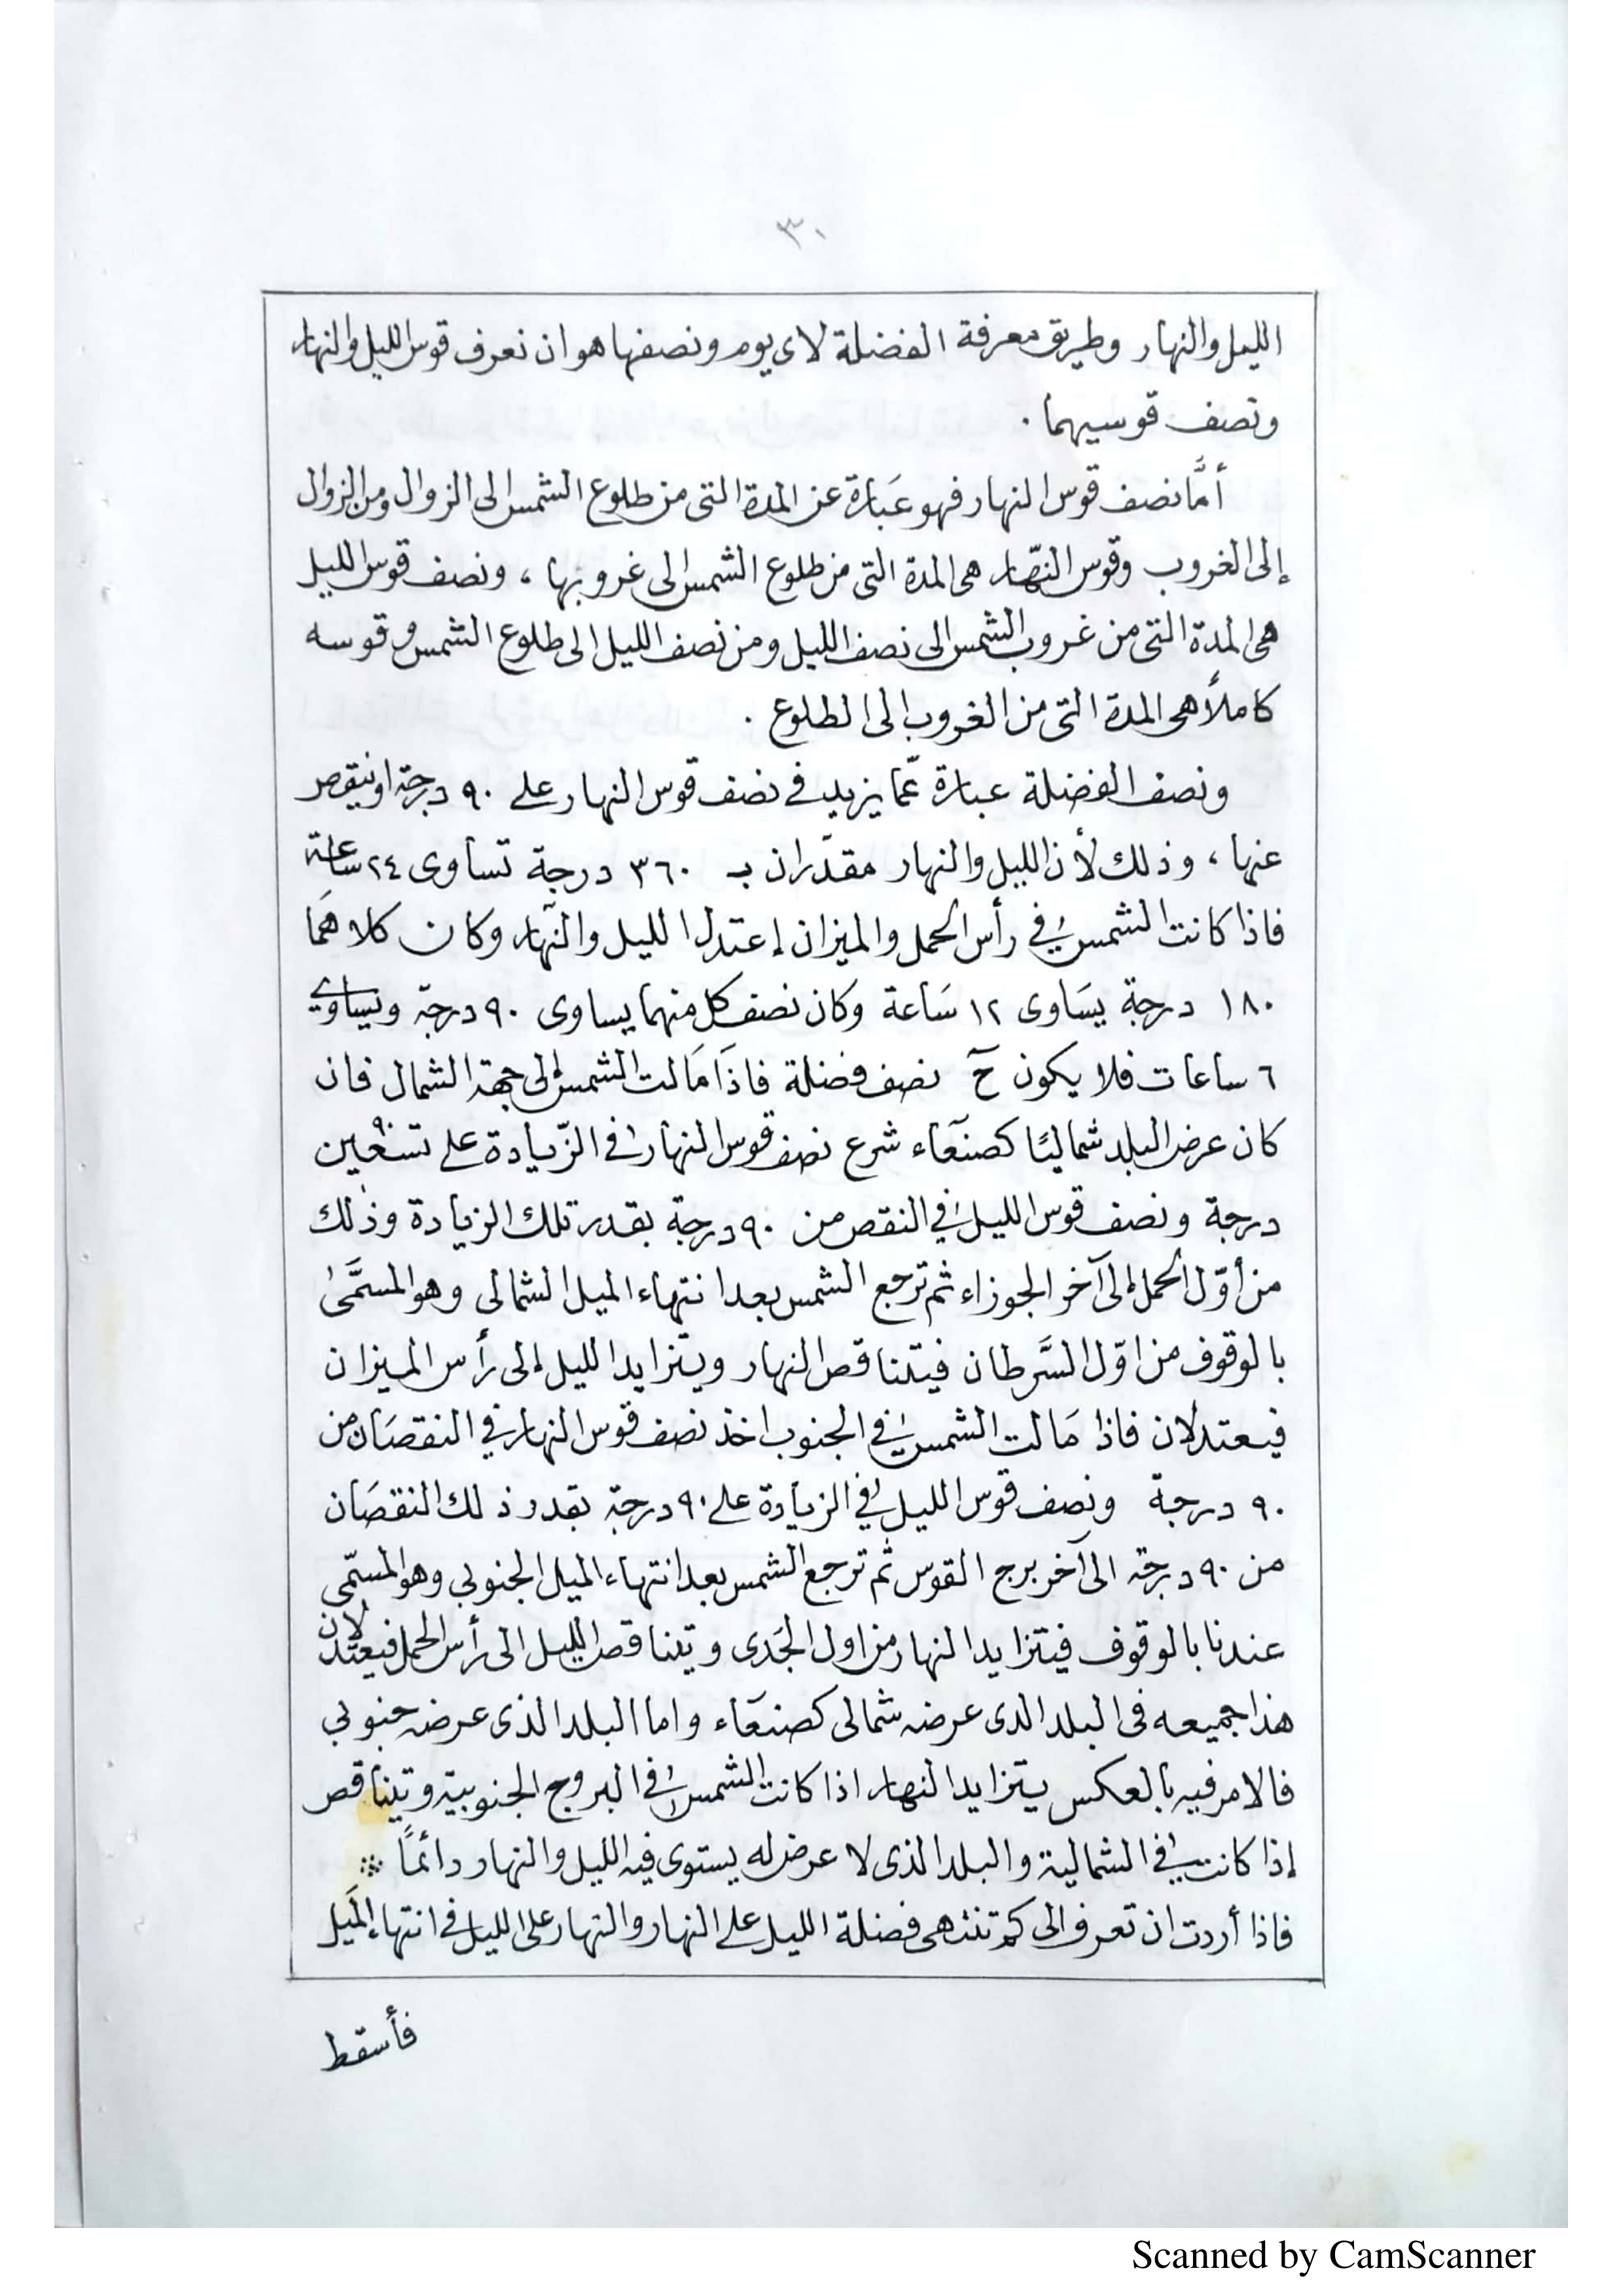 ٣٠
الليل والنهار وطريق معرفة الفضلة لاى يوم ونصفها هو ان نعرف قوس الليل والنهار
ونصف قوسيهما .
أمَّا نصف قوس النهار فهو عَبارة عن المدة التى من طلوع الشمس الى الزوال ومن الزوال
إلى الغروب وقوس النّهار هى المدة التى من طلوع الشمس الى غروبها ، ونصف قوس الليل
هى المدة التى من غروب الشمس الى نصف الليل ومن نصف الليل الى طلوع الشمس وقوسه
كاملاً هى المدة التى من الغروب الى الطلوع .
ونصف الفضلة عبارة عمّا يزيد في نصف قوس النهار على ٩٠ درجة او ينقص
عنها ، وذلك لأن الليل والنهار مقدّران بـ ٣٦٠ درجة تساوى ٢٤ ساعة
فاذا كانت الشمس في رأس الحمل والميزان إعتدل الليل والنّهار وكان كلاهمَا
١٨٠ درجة يسَاوى ١٢ سَاعة وكان نصف كل منهما يساوى ٩٠ درجة ويساوي
٦ ساعات فلا يكون حٓ نصف فضلة فاذَا مَالت الشمس إلى جهة الشمال فان
كان عرض البلد شماليًا كصنعَاء شرع نصف قوس النهار في الزّيادة على تسعين ٩٠
درجة ونصف قوس الليل في النقص من ٩٠ درجة بقدر تلك الزيادة وذلك
من أوّل الحمل إلى آخر الجوزاء ثم ترجع الشمس بعد انتهاء الميل الشمالى وهو المسمَّى
بالوقوف من اوّل السَّرطان فيتناقص النهار ويتزايد الليل إلى رأس الميزان
فيعتدلان فاذا مَالت الشمس في الجنوب اخذ نصف قوس النهار في النقصَان من
٩٠ درجة ونصف قوس الليل في الزيادة على ٩٠ درجة بقدر ذلك النقصَان
من ٩٠ درجة الى آخر برج القوس ثم ترجع الشمس بعد انتهاء الميل الجنوبي وهو المسمّى
عندنا بالوقوف فيتزايد النهار من اول الجَدى ويتناقص الليل الى رأس الحمل فيعتدلان
هذا جميعه فى البلد الذى عرضه شمالى كصنعَاء واما البلد الذى عرضه جنوبي
فالامر فيه بالعكس يتزايد النهار اذا كانت الشمس في البروج الجنوبية ويتناقص
إذا كانت في الشمالية والبلد الذى لا عرض له يستوى فيه الليل والنهار دائماً
فاذا أردت ان تعرف الى كم تنتهى فضلة الليل على النهار والنهار على الليل في انتهاء الميَل
فأسقط
Scanned by CamScanner